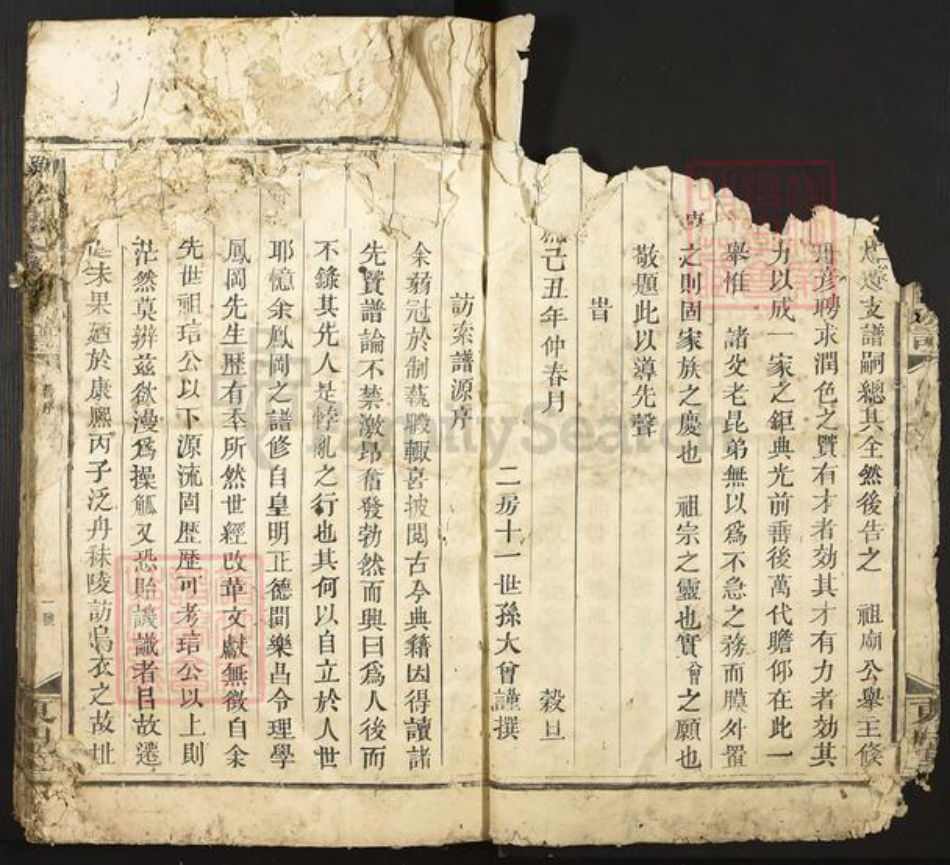 遠支譜嗣總其全然後告之 祖廟公舉王條
彦聘求潤色之賢有才者効其才有力者効其
力以成一家之鉅典光前垂後萬代瞻仰在此一
舉惟 諸父老昆弟無以爲不急之務而膜外置
之則固家族之慶也 祖宗之靈也實曾之願也
敬題此以導先聲
旹
己丑年仲春月 穀旦
二房十一世孫大曾謹撰
訪案譜源序
余弱冠於制蓺暇輒喜披閱古今典籍因得讀諸
先賢譜論不禁激昂奮發勃然而興曰爲人後而
不錄其先人是悖亂之行也其何以自立於人世
耶憶余鳳岡之譜修自皇明正德間樂昌令理學
鳳岡先生歷有年所然世經改革文獻無徵自余
先世祖琂公以下源流固歷歷可考琂公以上則
茫然莫辨茲欲漫爲操觚又恐貽譏識者呂故遷
延未果廼於康熈丙子泛舟秣陵訪烏衣之故址
舊序
一號
FamilySearch